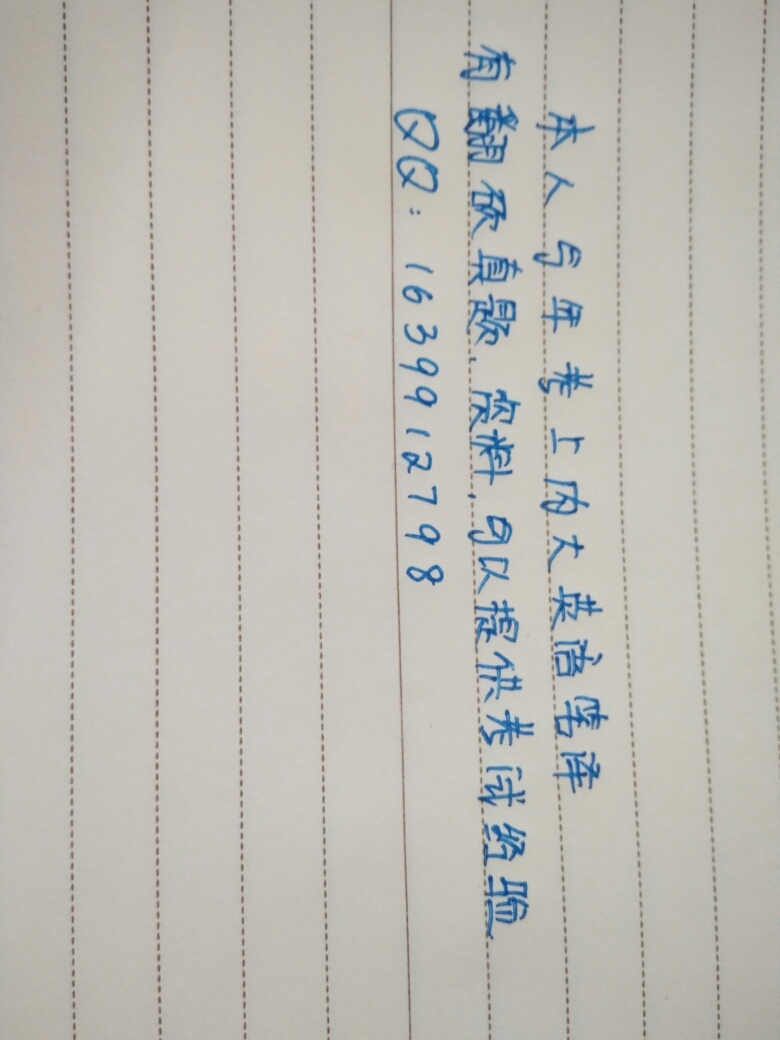 本人今年考上内大英语笔译
有翻硕真题、资料,可以提供考试经验
QQ: 1639912798